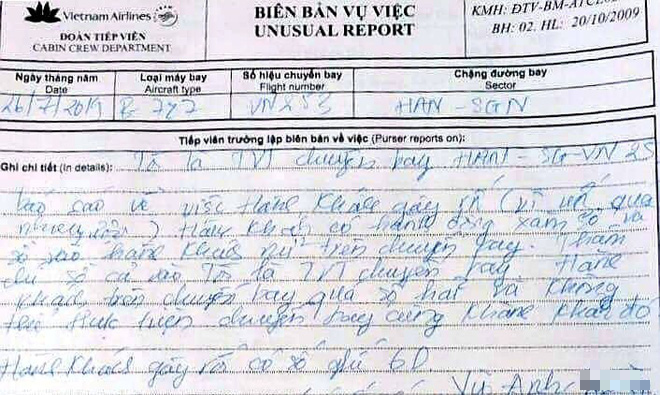 Vietnam Airlines
ĐOÀN TIẾP VIÊN
CABIN CREW DEPARTMENT
BIÊN BẢN VỤ VIỆC
UNUSUAL REPORT
KMH: ĐTV-BM-ATCL
BH: 02. HL: 20/10/2009
Ngày tháng năm
Date
Loại máy bay
Aircraft type
Số hiệu chuyến bay
Flight number
Chặng đường bay
Sector
26/7/2019
B 787
VN 253
HAN - SGN
Tiếp viên trưởng lập biên bản về việc (Purser reports on):
Ghi chi tiết (In details): Tôi là TVT chuyến bay HAN - SG - VN 25
báo cáo về việc Hành Khách gây rối (vì uống quá
nhiều rượu) Hành Khách có hành động xàm sỡ và
sờ vào hành khách nữ trên chuyến bay. Thậm
chí sờ cả vào Tôi là TVT chuyến bay. Hành
Khách trên chuyến bay quá sợ hãi và không
thể thực hiện chuyến bay cùng hành khách đó
Hành khách gây rối có số ghế 6D.
Vũ Anh